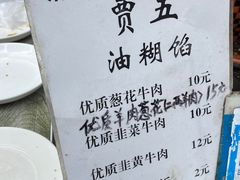 贾五
油糊馅
优质葱花牛肉 10元
优质羊肉葱花(二两羊肉)15元
优质韭菜牛肉 10元
优质韭黄牛肉 12元
2元